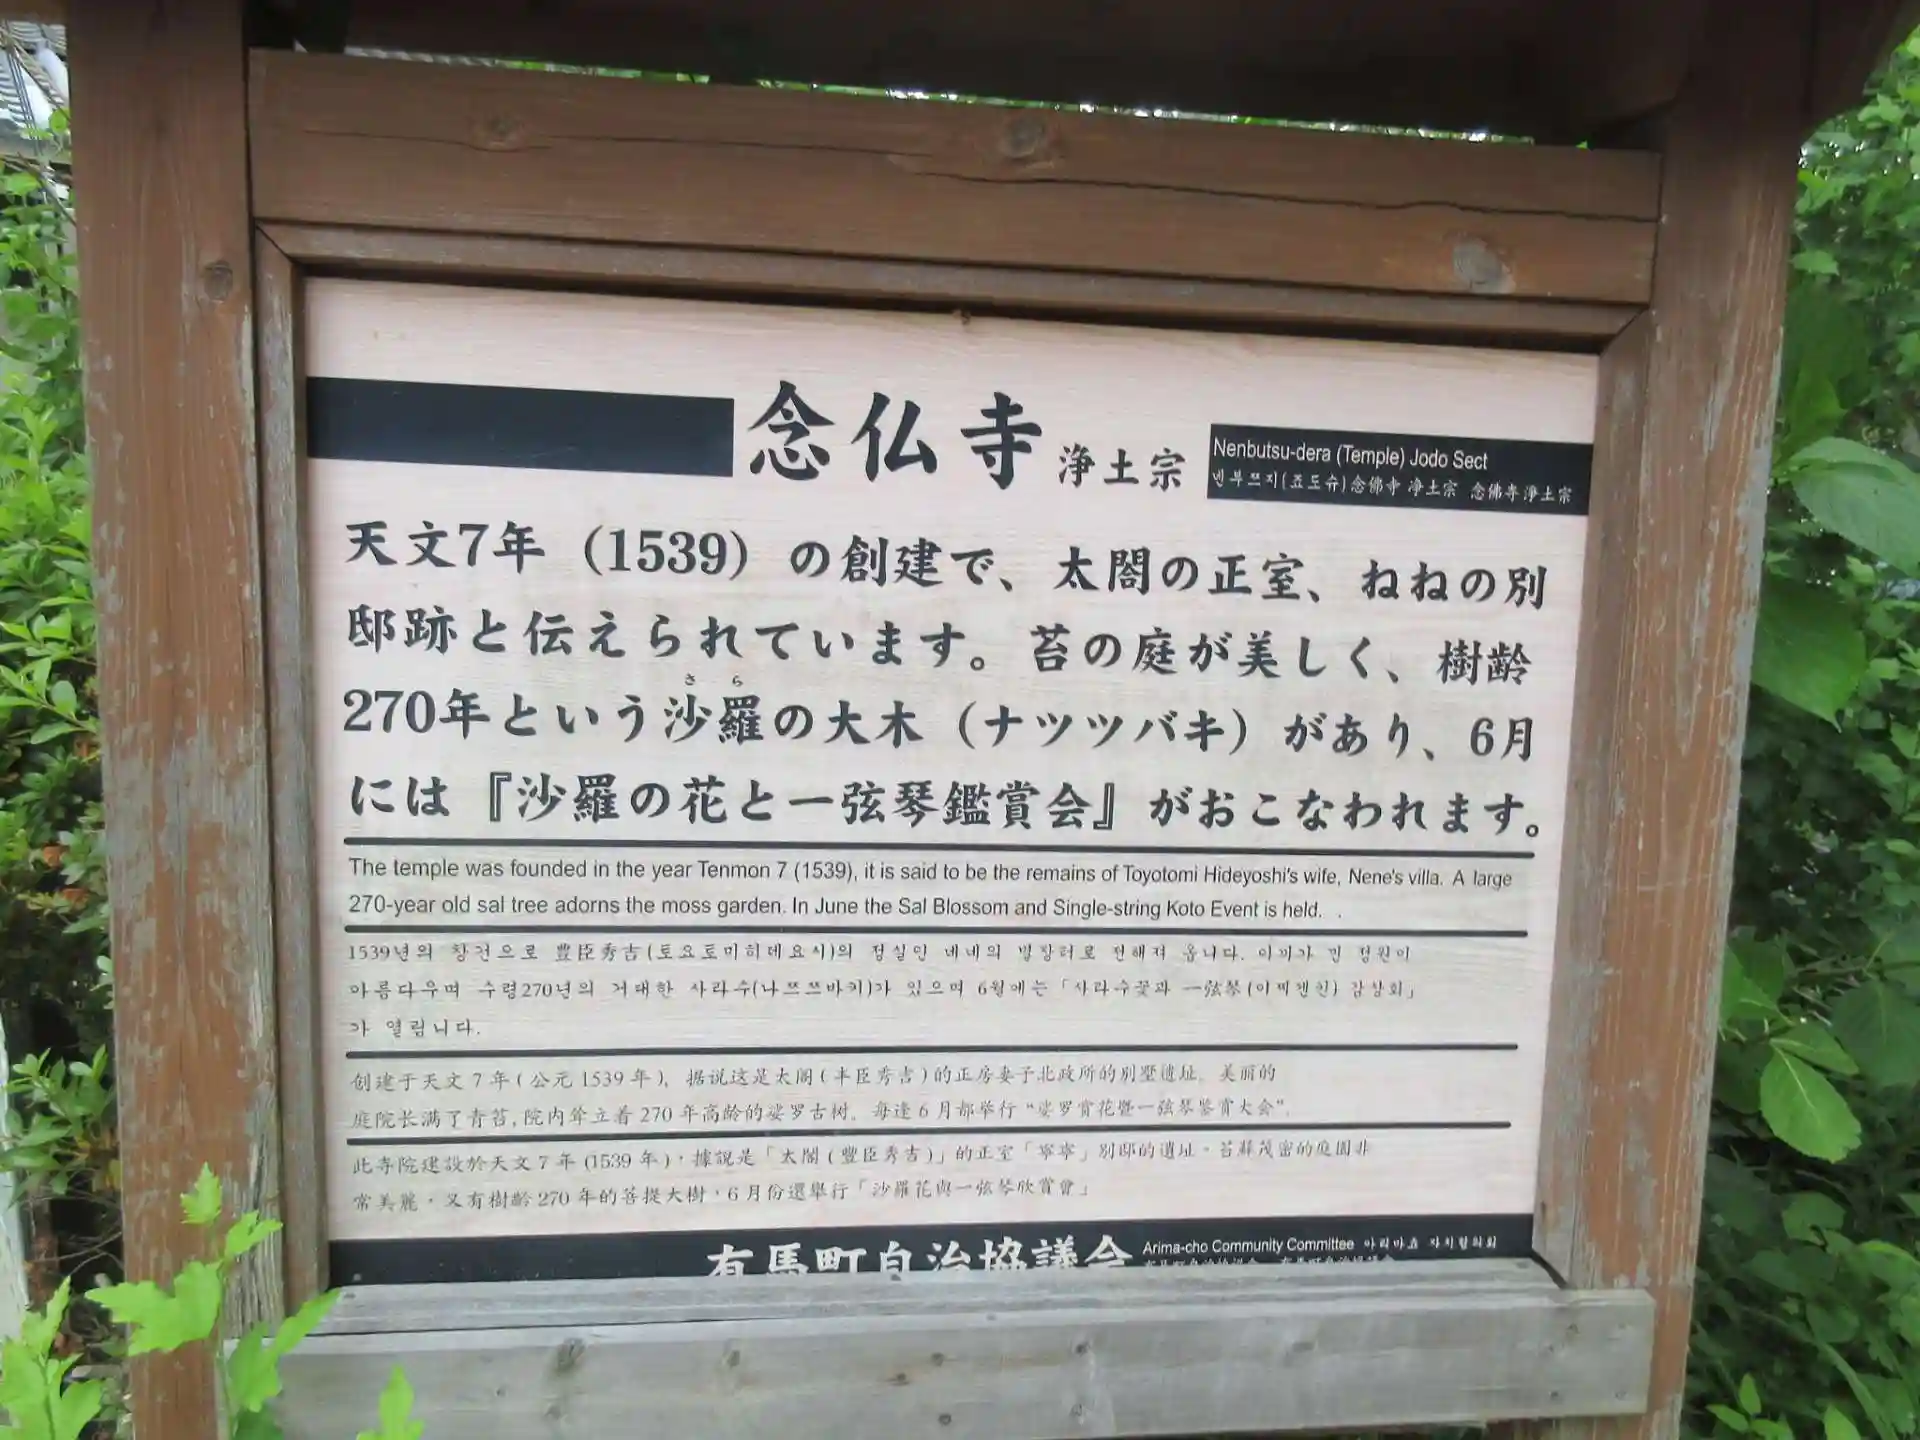 念仏寺 浄土宗
Nenbutsu-dera (Temple) Jodo Sect
넨부쯔지(죠도슈)念佛寺 浄土宗 念佛寺 浄土宗
天文7年（1539）の創建で、太閤の正室、ねねの別
邸跡と伝えられています。苔の庭が美しく、樹齢
さら
270年という沙羅の大木（ナツツバキ）があり、6月
には『沙羅の花と一弦琴鑑賞会』がおこなわれます。
The temple was founded in the year Tenmon 7 (1539), it is said to be the remains of Toyotomi Hideyoshi's wife, Nene's villa. A large
270-year old sal tree adorns the moss garden. In June the Sal Blossom and Single-string Koto Event is held.
1539년의 창건으로 豊臣秀吉(토요토미히데요시)의 정실인 네네의 별장터로 전해져 옵니다. 이끼가 낀 정원이
아름다우며 수령270년의 거대한 사라수(나쯔쯔바키)가 있으며 6월에는「사라수꽃과 一弦琴(이찌겐킨) 감상회」
가 열립니다.
创建于天文 7 年 ( 公元 1539 年 )，据说这是太阁 ( 丰臣秀吉 ) 的正房妻子北政所的别墅遗址。美丽的
庭院长满了青苔, 院内耸立着 270 年高龄的娑罗古树。每逢 6 月都举行 “娑罗赏花暨一弦琴鉴赏大会”。
此寺院建設於天文 7 年 (1539 年 )，據說是「太閣 ( 豐臣秀吉 )」的正室「寧寧」別邸的遺址。苔蘚茂密的庭園非
常美麗，又有樹齡 270 年的菩提大樹，6 月份還舉行「沙羅花與一弦琴欣賞會」
有馬町自治協議会
Arima-cho Community Committee 아리마쵸 자치협의회